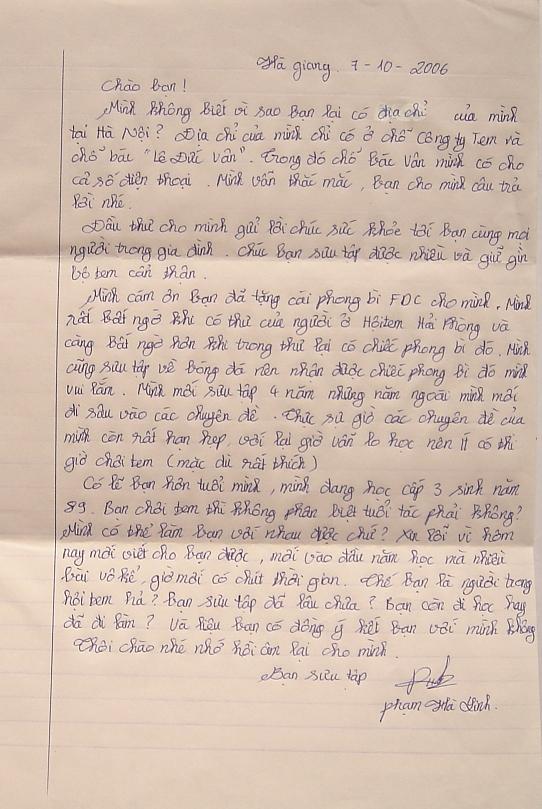 Hà giang. 7-10-2006
Chào bạn!
Mình không biết vì sao bạn lại có địa chỉ của mình
tại Hà Nội? Địa chỉ của mình chỉ có ở chỗ công ty Tem và
chỗ bác "Lê Đức Vân". Trong đó chỗ Bác Vân mình có cho
cả số điện thoại. Mình vẫn thắc mắc, Bạn cho mình câu trả
lời nhé.
Đầu thư cho mình gửi lời chúc sức khỏe tới Bạn cùng mọi
người trong gia đình. Chúc Bạn sưu tập được nhiều và giữ gìn
bộ tem cẩn thận.
Mình cám ơn Bạn đã tặng cái phong bì FDC cho mình. Mình
rất Bất ngờ khi có thư của người ở Hội tem Hải Phòng và
càng Bất ngờ hơn khi trong thư lại có chiếc phong bì đó. Mình
cũng sưu tập về bóng đá nên nhận được chiếc phong bì đó mình
vui lắm. Mình mới sưu tập 4 năm nhưng năm ngoái mình mới
đi sâu vào các chuyên đề. Thực sự giờ các chuyên đề của
mình còn rất hạn hẹp, với lại giờ vẫn lo học nên ít có thì
giờ chơi tem (mặc dù rất thích)
Có lẽ Bạn hơn tuổi mình, mình đang học cấp 3 sinh năm
89. Bạn chơi tem thì không phân biệt tuổi tác phải không?
Mình có thể làm Bạn với nhau được chứ? Xin lỗi vì hôm
nay mới viết cho Bạn được, mới vào đầu năm học mà nhiều
bài vô kể, giờ mới có chút thời gian. Thế Bạn là người trong
hội tem hả? Bạn sưu tập đã lâu chưa? Bạn còn đi học hay
đã đi làm? Và liệu Bạn có đồng ý kết Bạn với mình không
Thôi chào nhé nhớ hồi âm lại cho mình.
Bạn sưu tập
phạm Hà